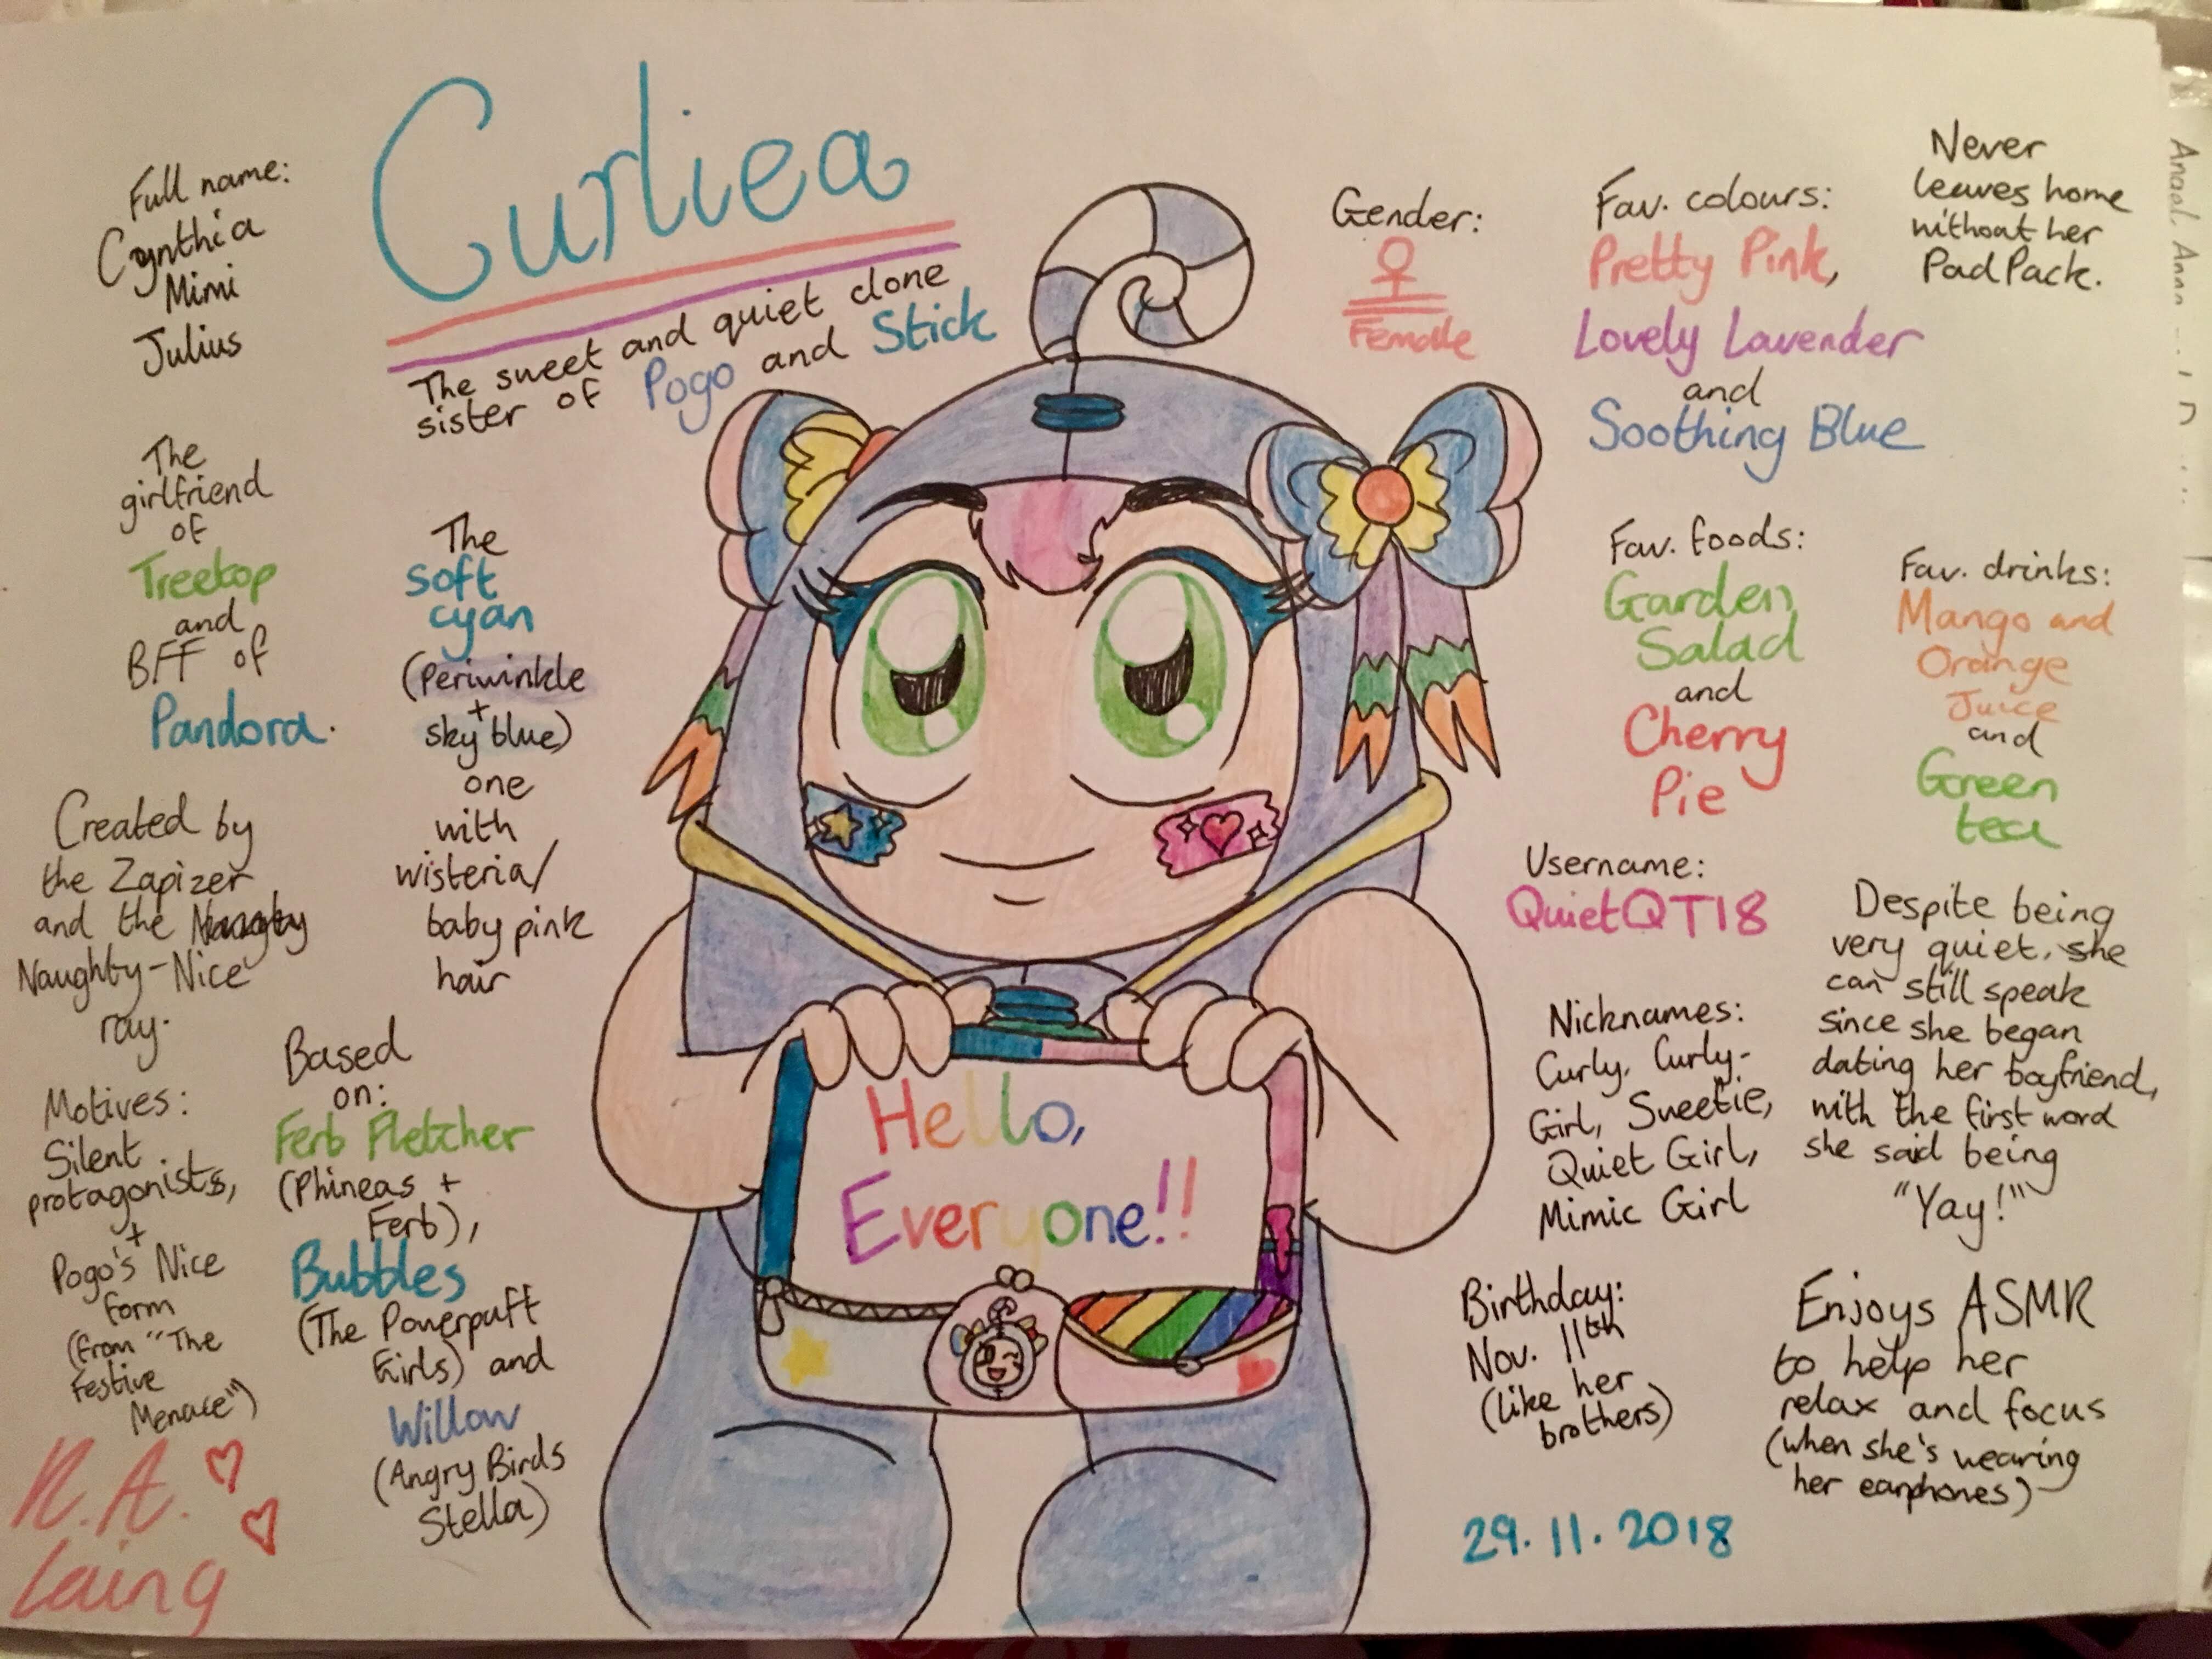 Curliea
The sweet and quiet clone
sister of Pogo and Stick
Full name:
Cynthia
Mimi
Julius
The
girlfriend
of
Treetop
and
BFF of
Pandora.
The
soft
cyan
(Periwinkle
+
sky blue)
one
with
wisteria/
baby pink
hair
Created by
the Zapizer
and the
Naughty-Nice
ray.
Motives:
Silent
protagonists,
+
Pogo's Nice
form
(from "The
Festive
Menace")
Based
on:
Ferb Fletcher
(Phineas +
Ferb),
Bubbles
(The Powerpuff
Girls) and
Willow
(Angry Birds
Stella)
N.A.
Laing
Hello,
Everyone!!
Gender:
Female
Fav. colours:
Pretty Pink,
Lovely Lavender
and
Soothing Blue
Never
leaves home
without her
PadPack.
Fav. foods:
Garden
Salad
and
Cherry
Pie
Fav. drinks:
Mango and
Orange
Juice
and
Green
tea
Username:
QuietQT18
Nicknames:
Curly, Curly-
Girl, Sweetie,
Quiet Girl,
Mimic Girl
Despite being
very quiet, she
can still speak
since she began
dating her boyfriend,
with the first word
she said being
"Yay!"
Birthday:
Nov. 11th
(like her
brothers)
Enjoys ASMR
to help her
relax and focus
(when she's wearing
her earphones)
29.11.2018